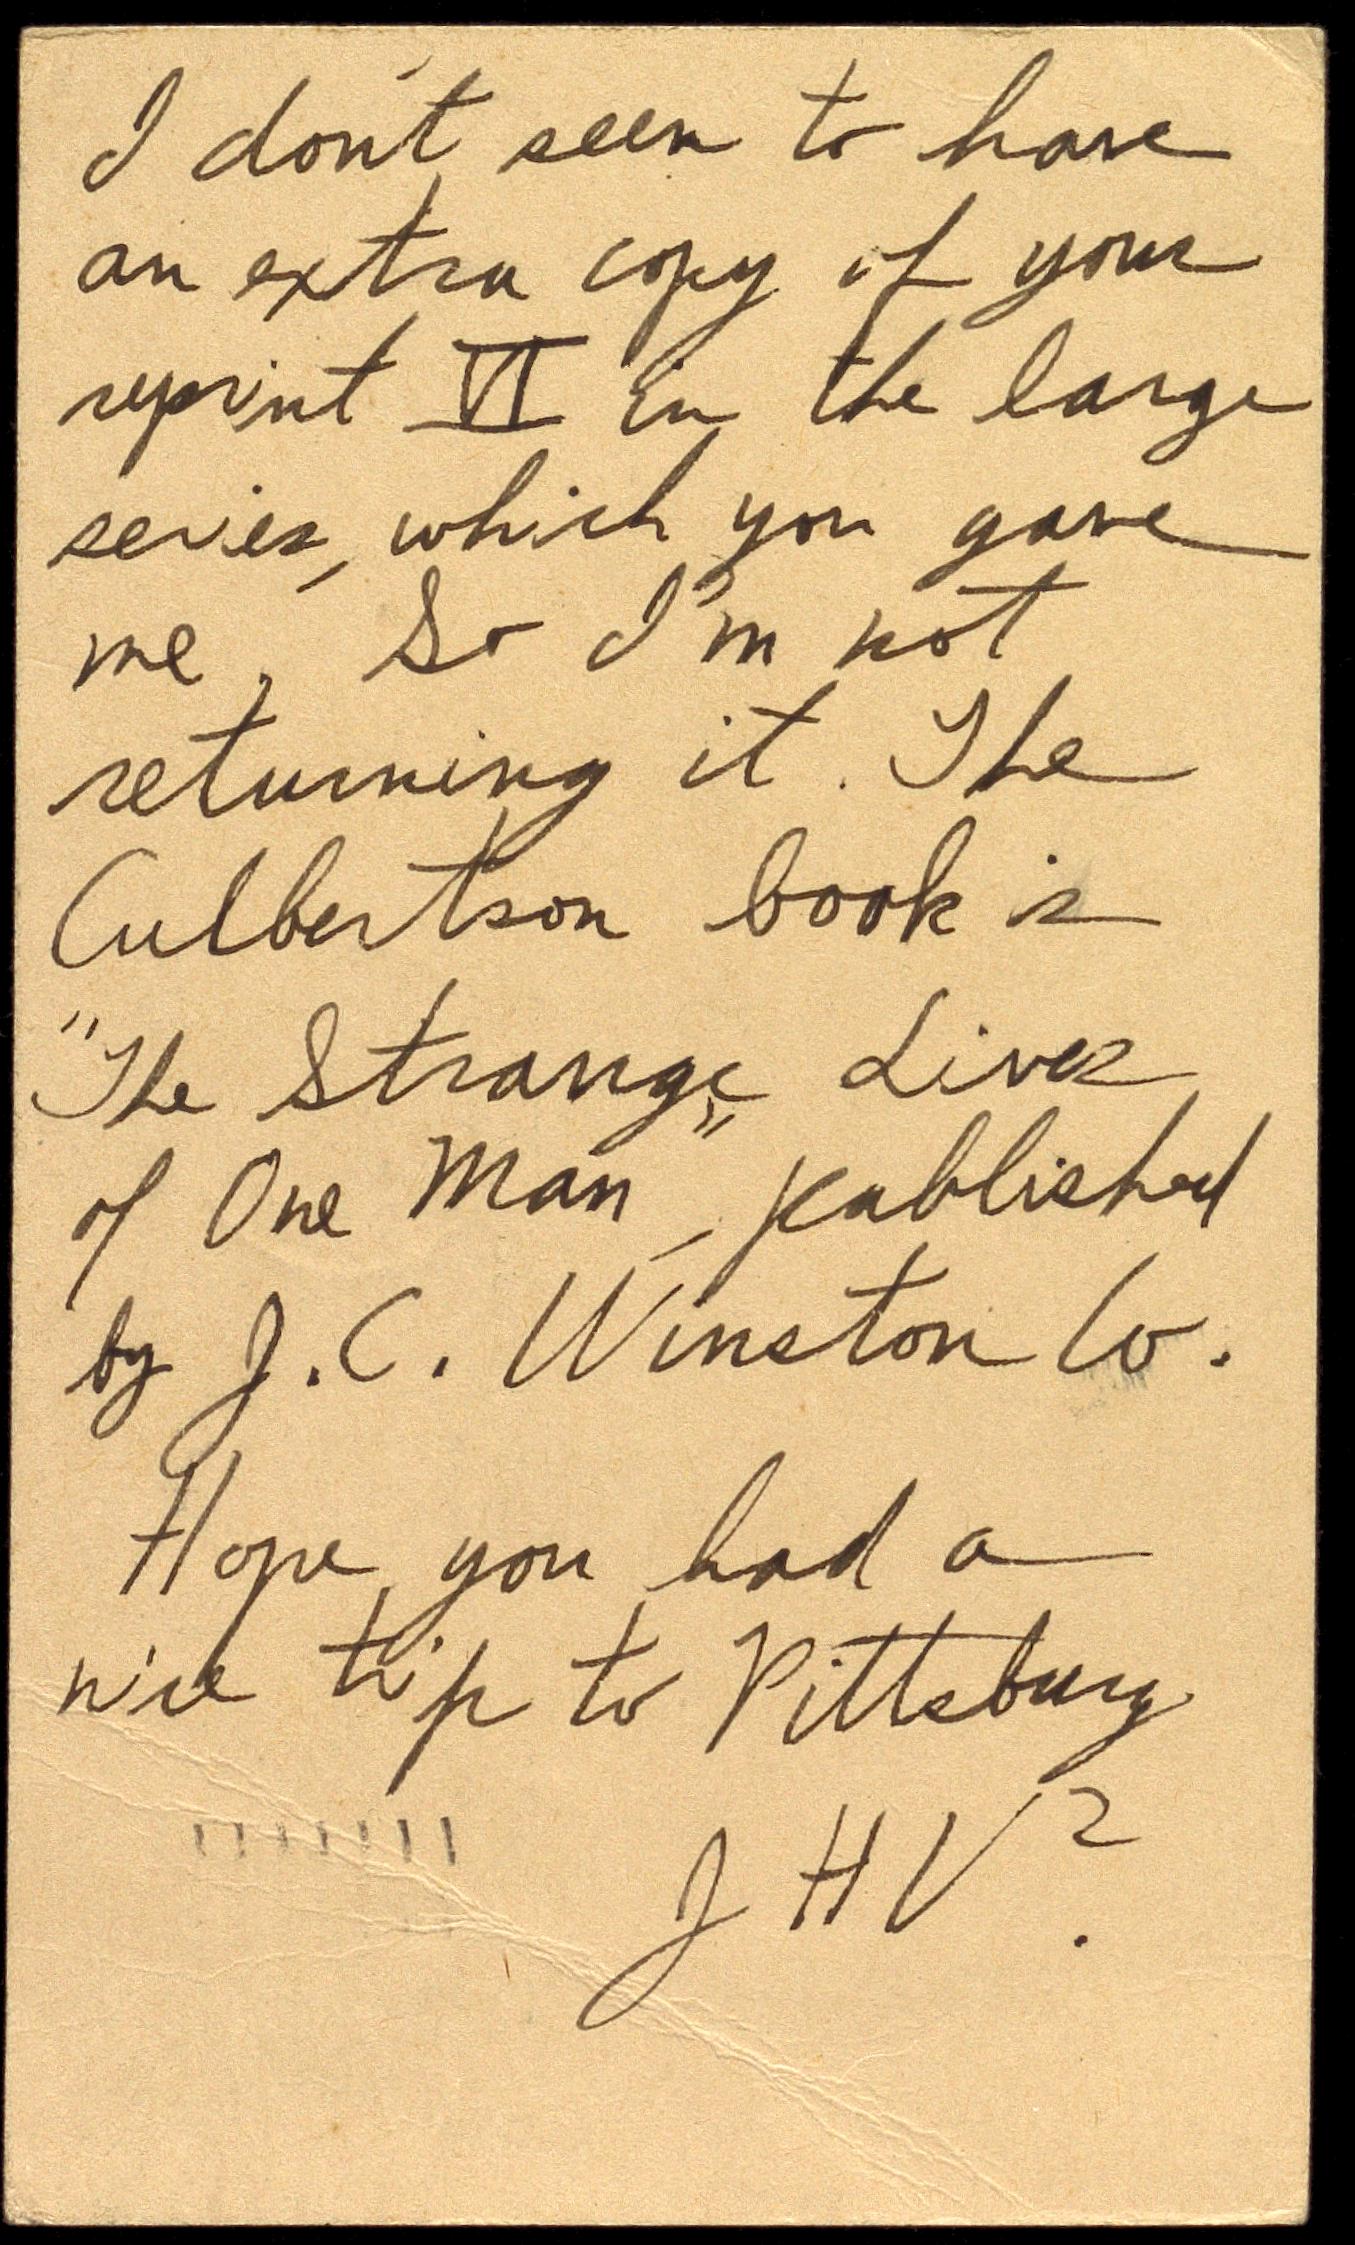 I don't seem to have
an extra copy of your
reprint VI in the large
series, which you gave
me, So I'm not
returning it. The
Culbertson book is
"The Strange Lives
of One Man", published
by J. C. Winston Co.
Hope you had a
nice trip to Pittsburg
J H V 2.